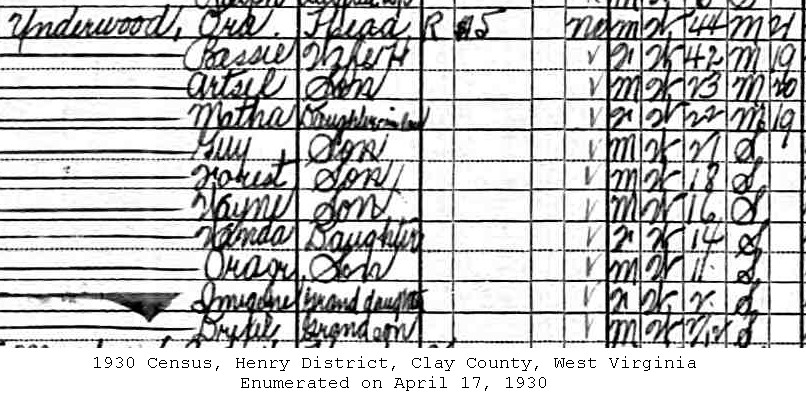 Underwood, Ora. Head R 15 no m W 44 M 21
Bassie Wife H √ F W 42 M 19
Artsel Son √ m W 23 M 20
Matha Daughter in law √ F W 22 M 19
Guy Son √ m W 21 S
Forest Son √ m W 18 S
Wayne Son √ m W 16 S
Wanda Daughter √ F W 14 S
Son √ m W 11 S
Imigdene Grand daughter √ F W 2 S
Grandson √ m W S
1930 Census, Henry District, Clay County, West Virginia
Enumerated on April 17, 1930